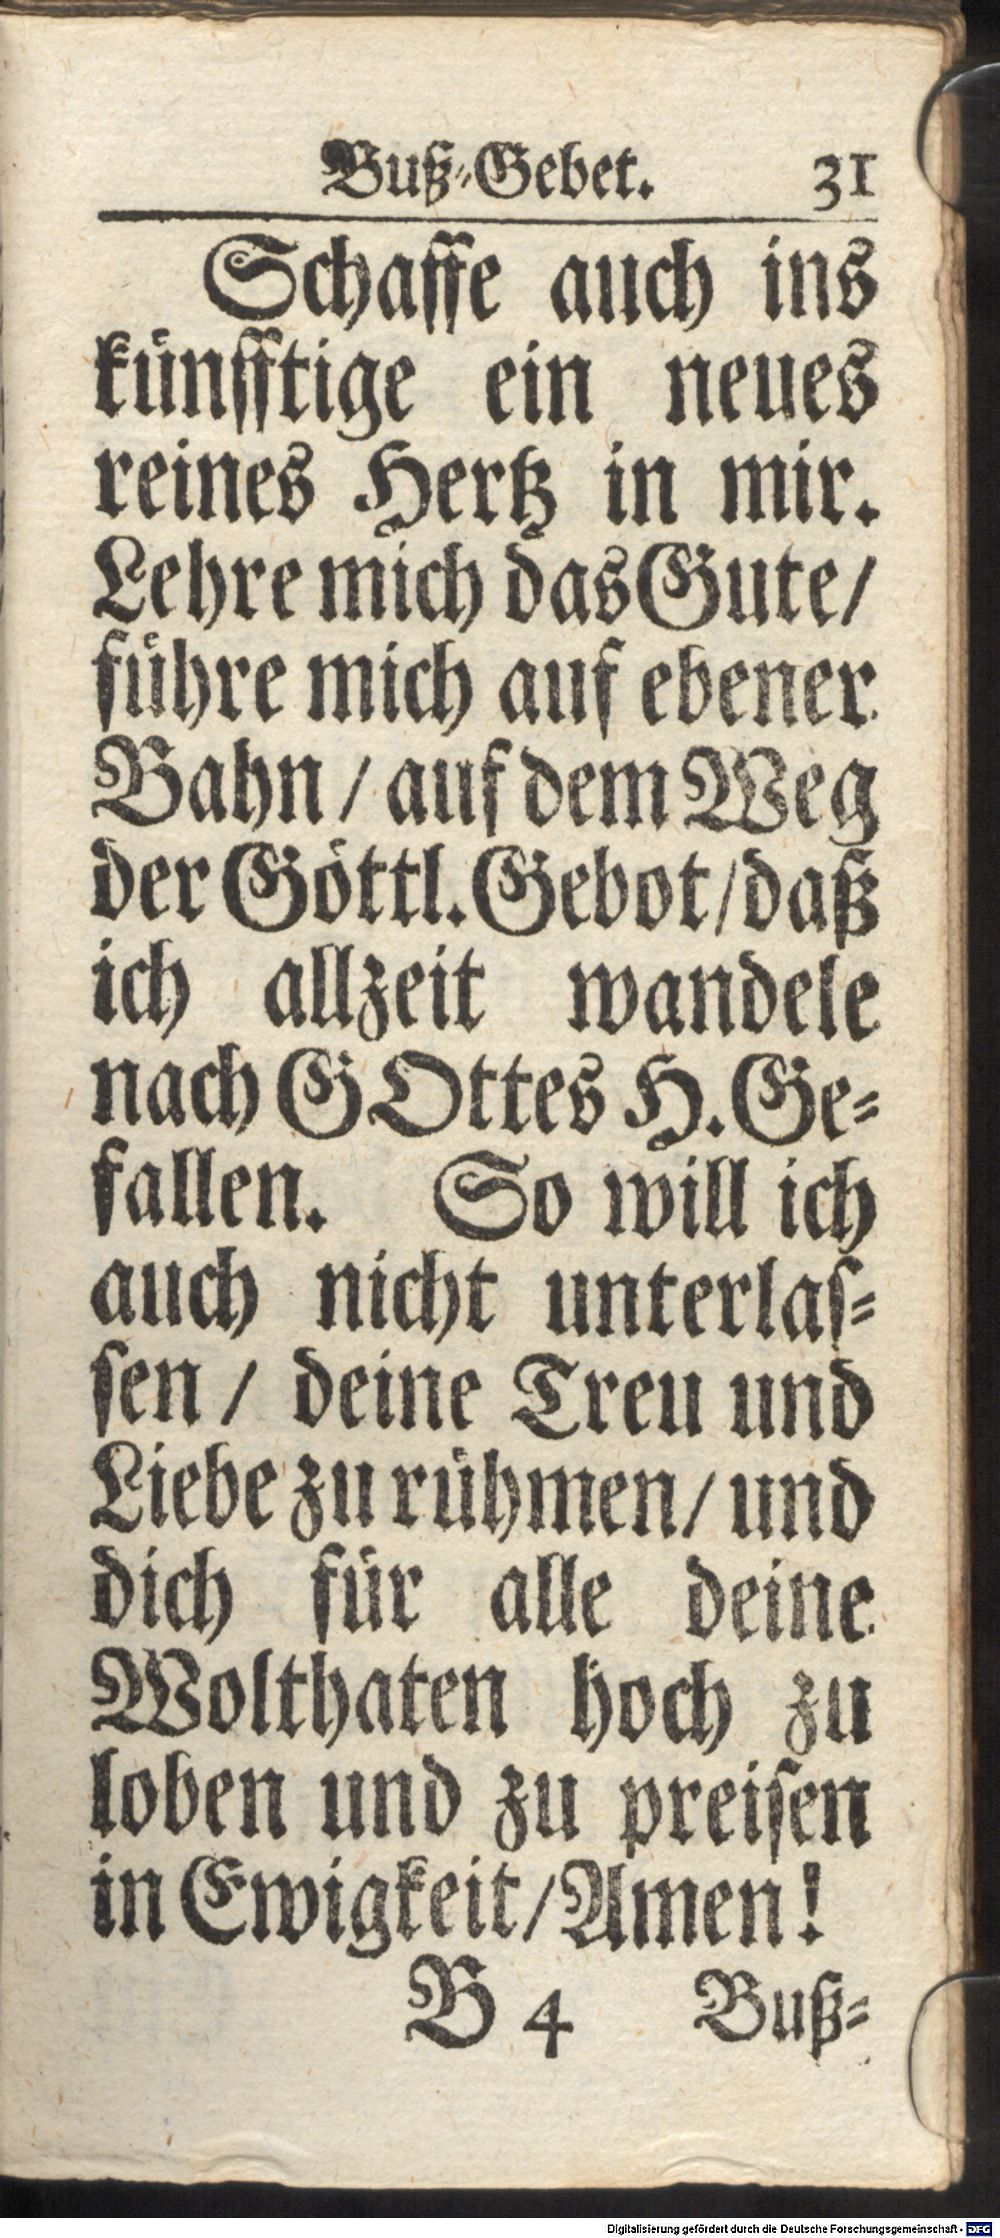 Buß-Gebet. 31
Schaffe auch ins
künfftige ein neues
reines Hertz in mir.
Lehre mich das Gute/
führe mich auf ebener
Bahn / auf dem Weg
der Göttl. Gebot/daß
ich allzeit wandele
nach GOttes H. Ge-
fallen. So will ich
auch nicht unterlas-
sen / deine Treu und
Liebe zu rühmen/ und
dich für alle deine
Wolthaten hoch zu
loben und zu preisen
in Ewigkeit/Amen!
B 4 Buß-
Digitalisierung gefördert durch die Deutsche Forschungsgemeinschaft - DFG